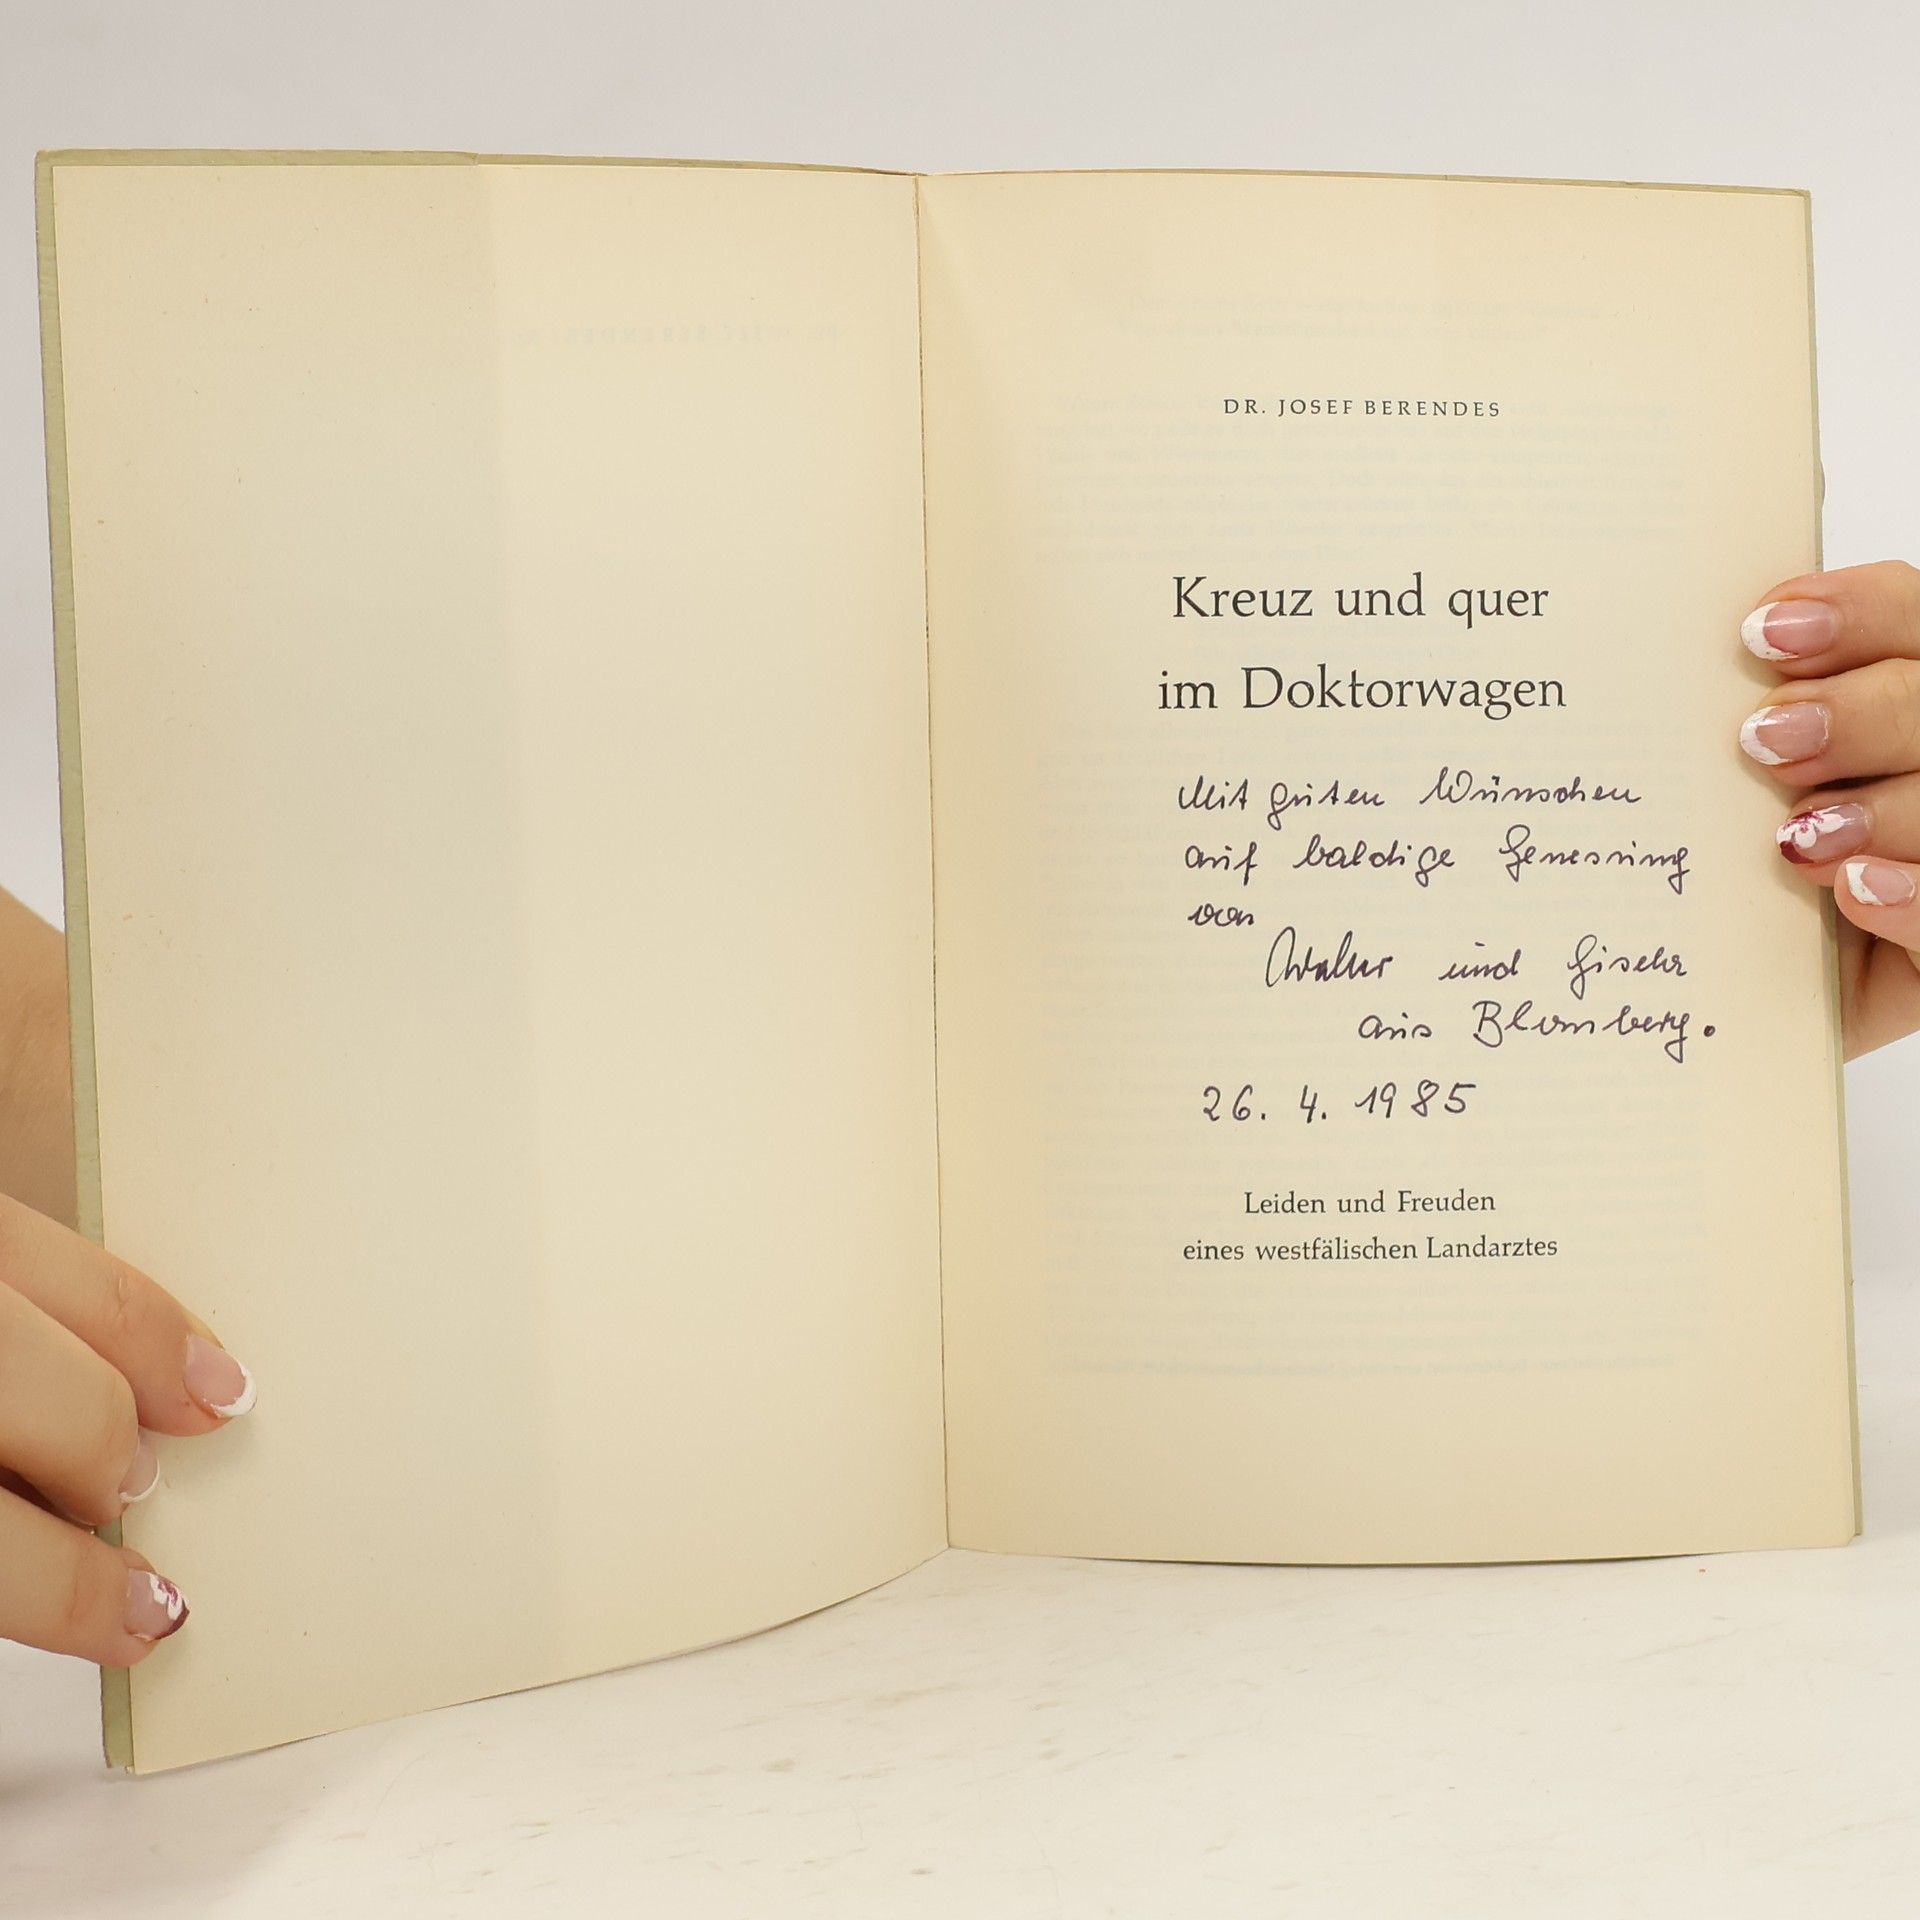 DR. JOSEF BERENDES
Kreuz und quer
im Doktorwagen
Mit guten Wünschen
auf baldige Genesung
von
Walter und Gisela
aus Blomberg.
26. 4. 1985
Leiden und Freuden
eines westfälischen Landarztes